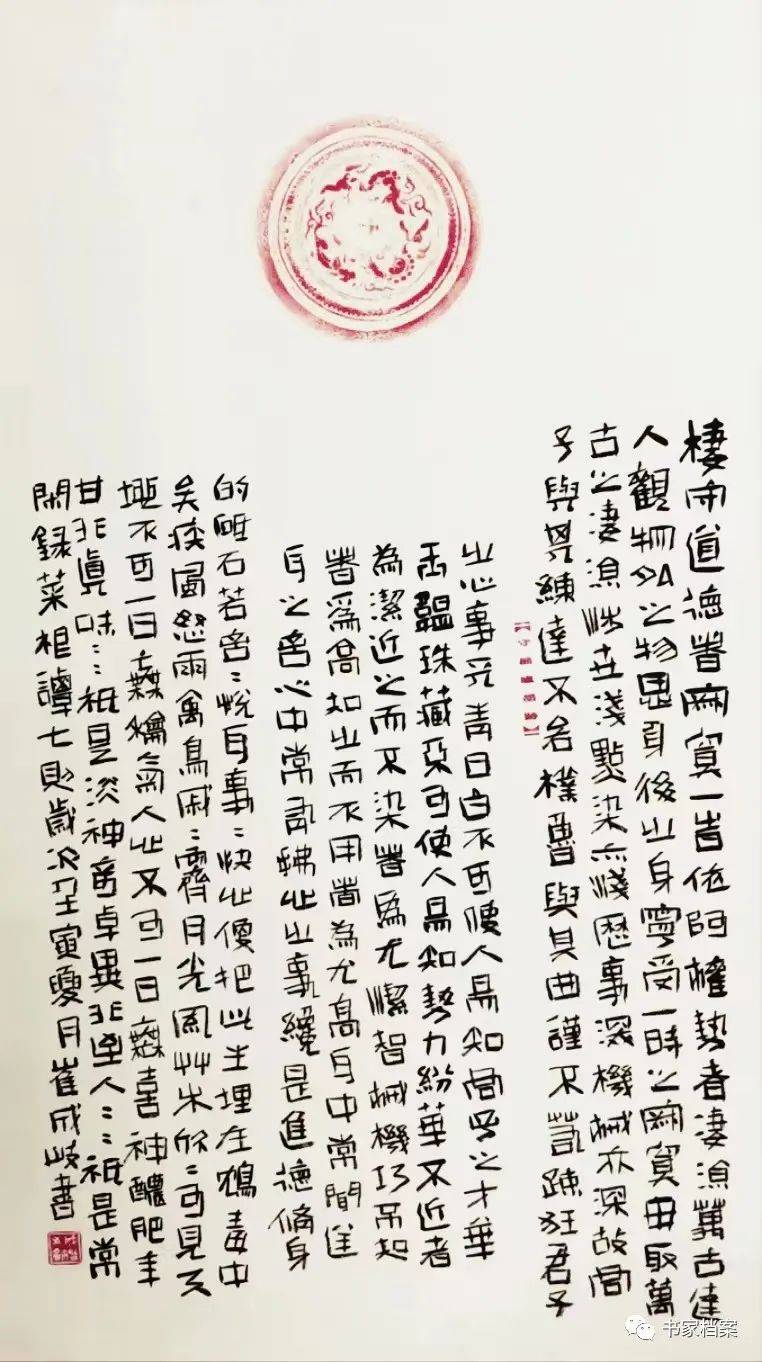 棲守道德者寂寞一時依阿權勢者淒涼萬古達
人觀物外之物思身後之身寧受一時之寂寞毋取萬
古之淒涼涉世淺點染亦淺歷事深機械亦深故君
子與其練達不若樸魯與其曲謹不若疎狂君子
之心事天青日白不可使人易知君子之才華
玉韞珠藏不可使人易知勢力紛華不近者
為潔近之而不染者為尤潔智械機巧不知
者為高知之而不用者為尤高耳中常聞逆
耳之言心中常有拂心之事纔是進德脩身
的砥石若言〻悅耳事〻快心便把此生埋在鴆毒中
矣疾風怒雨禽鳥戚〻霽月光風艸木欣〻可見天
地不可一日無龢氣人心不可一日無喜神醲肥辛
甘非真味〻〻祇是淡神奇卓異非至人〻〻祇是常
閑錄菜根譚七則歲次壬寅夏月崔成岐書
书家档案